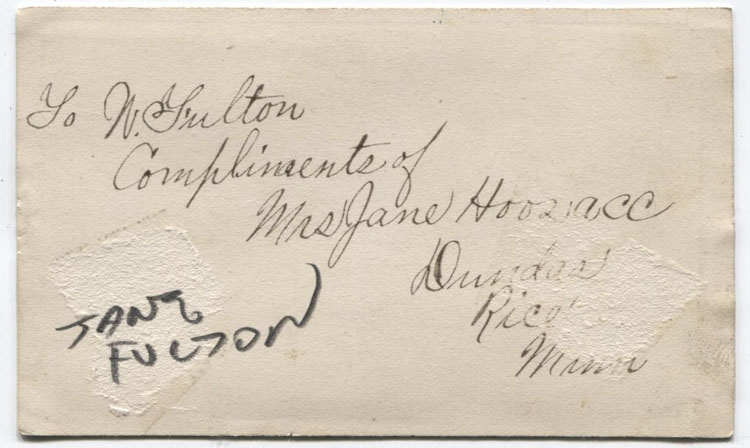 To W. Fulton
Compliments of
Mrs Jane
Dundas
Rice
Minn
JANE
FULTON